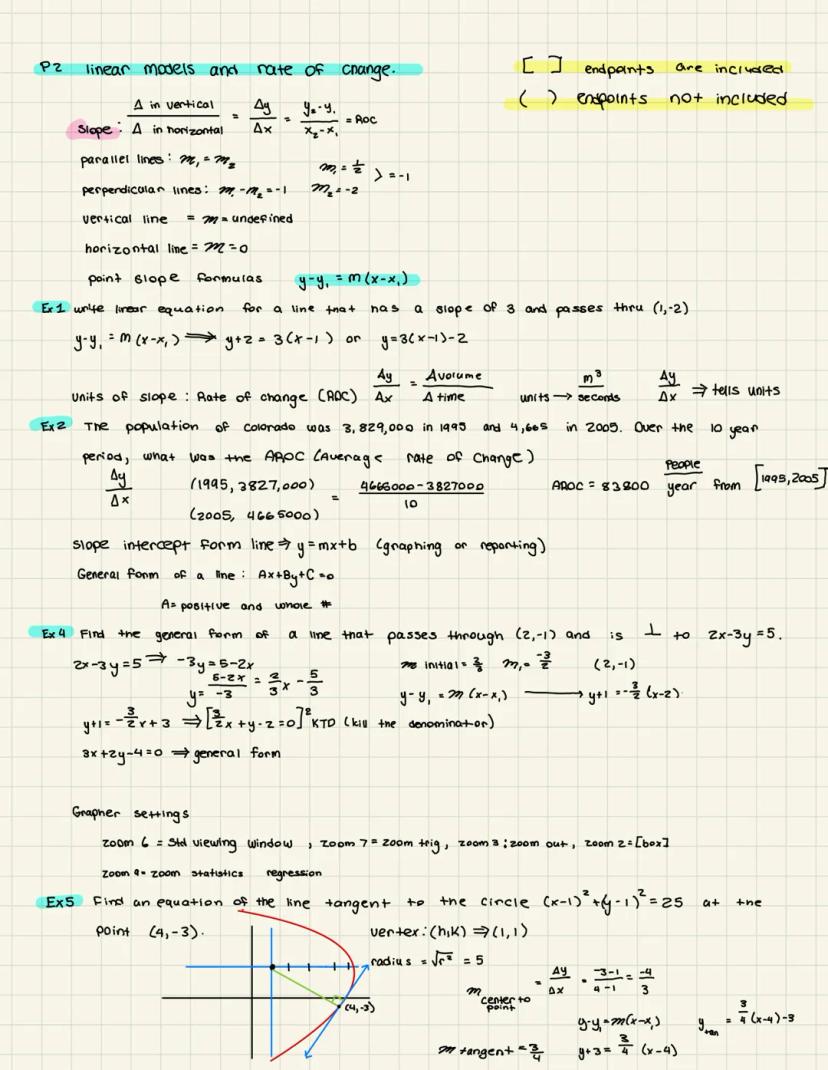 P2 linear models and rate of change.
[ ] endpoints are included
( ) endpoints not included
slope: Δ in vertical / Δ in horizontal = Δy/Δx = y₂-y₁ / x₂-x₁ = ROC
parallel lines: m₁ = m₂
perpendicular lines: m₁-m₂ = -1 m₁ = 1/2 m₂ = -2 > = -1
vertical line = m = undefined
horizontal line = m = 0
point slope formulas y-y₁ = m(x-x₁)
Ex1 write linear equation for a line that has a slope of 3 and passes thru (1,-2)
y-y₁ = m(x-x₁) ⟹ y+2 = 3(x-1) or y=3(x-1)-2
units of slope: Rate of change (ROC) Δy/Δx = Δvolume/Δtime units → m³/seconds Δy/Δx ⇒ tells units
Ex2 The population of colorado was 3,829,000 in 1995 and 4,665 in 2005. Over the 10 year
period, what was the AROC (Average rate of change)
Δy/Δx (1995, 3827,000) = 4665000-3827000 / 10 AROC = 83800 people/year from [1995,2005]
(2005, 4665000)
slope intercept form line ⇒ y=mx+b (graphing or reporting)
General form of a line: Ax+By+C=0
A= positive and whole #
Ex4 Find the general form of a line that passes through (2,-1) and is ⊥ to 2x-3y=5.
2x-3y=5 ⇒ -3y=5-2x m initial = 2/3 m₁= -3/2 (2,-1)
y= 5-2x/-3 = 2/3x - 5/3 y-y₁ = m(x-x₁) → y+1 = -3/2(x-2)
y+1= -3/2x+3 ⇒ [3/2x+y-2=0]² KTD (kill the denominator)
3x+2y-4=0 ⇒ general form
Grapher settings
zoom 6 = std viewing window, zoom 7 = zoom trig, zoom 3: zoom out, zoom 2=[box]
zoom 9= zoom statistics regression
Ex5 Find an equation of the line tangent to the circle (x-1)²+(y-1)²=25 at the
point (4,-3). vertex: (h,k) ⇒ (1,1)
radius = √r² = 5
m center to point = Δy/Δx = -3-1/4-1 = -4/3
(4,-3)
y-y₁=m(x-x₁) y tan = 3/4(x-4)-3
m tangent = 3/4 y+3 = 3/4 (x-4)